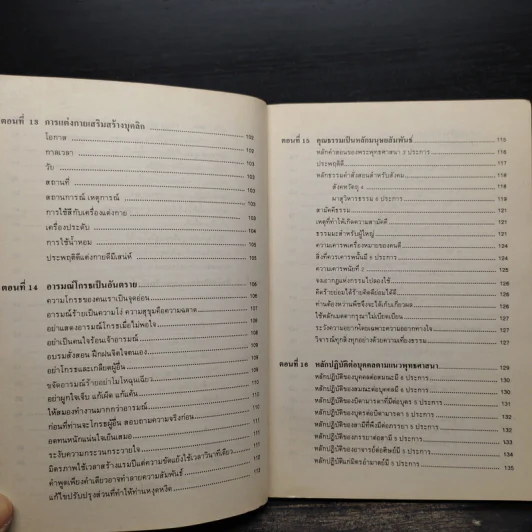 ตอนที่ 13 การแต่งกายเสริมสร้างบุคลิก
โอกาส 102
กาลเวลา 102
วัย 103
สถานที่ 103
สถานการณ์ เหตุการณ์ 103
การใช้สีกับเครื่องแต่งกาย 103
เครื่องประดับ 104
การใช้น้ำหอม 105
ประพฤติดีแต่งกายดีมีเสน่ห์ 105
ตอนที่ 14 อารมณ์โกรธเป็นอันตราย 106
ความโกรธของคนเราเป็นจุดอ่อน
อารมณ์ร้ายเป็นความโง่ ความสุขุมคือความฉลาด
อย่าแสดงอารมณ์โกรธเมื่อไม่พอใจ
อย่าเป็นคนใจร้อนเจ้าอารมณ์
อบรมสั่งสอน ฝึกฝนจิตใจตนเอง
อย่าโกรธและเกลียดผู้อื่น
ขจัดอารมณ์ร้ายอย่าโมโหฉุนเฉียว
อย่าผูกใจเจ็บ แก้เผ็ด แก้แค้น
ให้สมองทำงานมากกว่าอารมณ์
ก่อนที่ท่านจะโกรธผู้อื่น สอบถามความจริงก่อน
อดทนหนักแน่นใจเย็นเสมอ
ระงับความกระวนกระวายใจ
มิตรภาพใช้เวลาสร้างแรมปีแต่ความขัดแย้งใช้เวลาวินาทีเดียว
คำพูดเพียงคำเดียวอาจทำลายความสัมพันธ์
แก้ไขปรับปรุงส่วนที่ทำให้ท่านหงุดหงิด
ตอนที่ 15 คุณธรรมเป็นหลักมนุษยสัมพันธ์ 115
หลักคำสอนของพระพุทธศาสนา 3 ประการ 116
ประพฤติดี 117
หลักธรรมคำสั่งสอนสำหรับสังคม
สังคหวัตถุ 4
ผาสุวิหารธรรม 6 ประการ
สามัคคีธรรม
เหตุที่ทำให้เกิดความสามัคคี
ธรรมมะสำหรับผู้ใหญ่
ความเคารพเครื่องหมายของคนดี
สิ่งที่ควรเคารพนั้นมี 6 ประการ
ความเคารพมีอยู่ 2
จงเอากฎแห่งกรรมไปสอนใช้
คิดร้ายย่อมได้ร้ายคิดดีย่อมได้ดี
ท่านต้องหว่านพืชจึงจะได้เก็บเกี่ยวผล
ใช้หลักเมตตากรุณาไม่เบียดเบียน
ระวังความอยากโดยเฉพาะความอยากทางใจ
วิจารณ์ทุกสิ่งทุกอย่างด้วยความเที่ยงธรรม
ตอนที่ 16 หลักปฏิบัติต่อบุคคลตามแนวพุทธศาสนา 129
หลักปฏิบัติของบุคคลต่อสมณะมี 5 ประการ 130
หลักปฏิบัติของสมณะต่อบุคคลมี 6 ประการ 130
หลักปฏิบัติของบิดามารดาที่มีต่อบุตร 5 ประการ 131
หลักปฏิบัติของบุตรต่อบิดามารดา 5 ประการ
หลักปฏิบัติของสามีที่พึงมีต่อภรรยา 5 ประการ
หลักปฏิบัติของภรรยาต่อสามี 5 ประการ
หลักปฏิบัติของอาจารย์ต่อศิษย์มี 5 ประการ
หลักปฏิบัติแก่มิตรอำมาตย์มี 5 ประการ 135